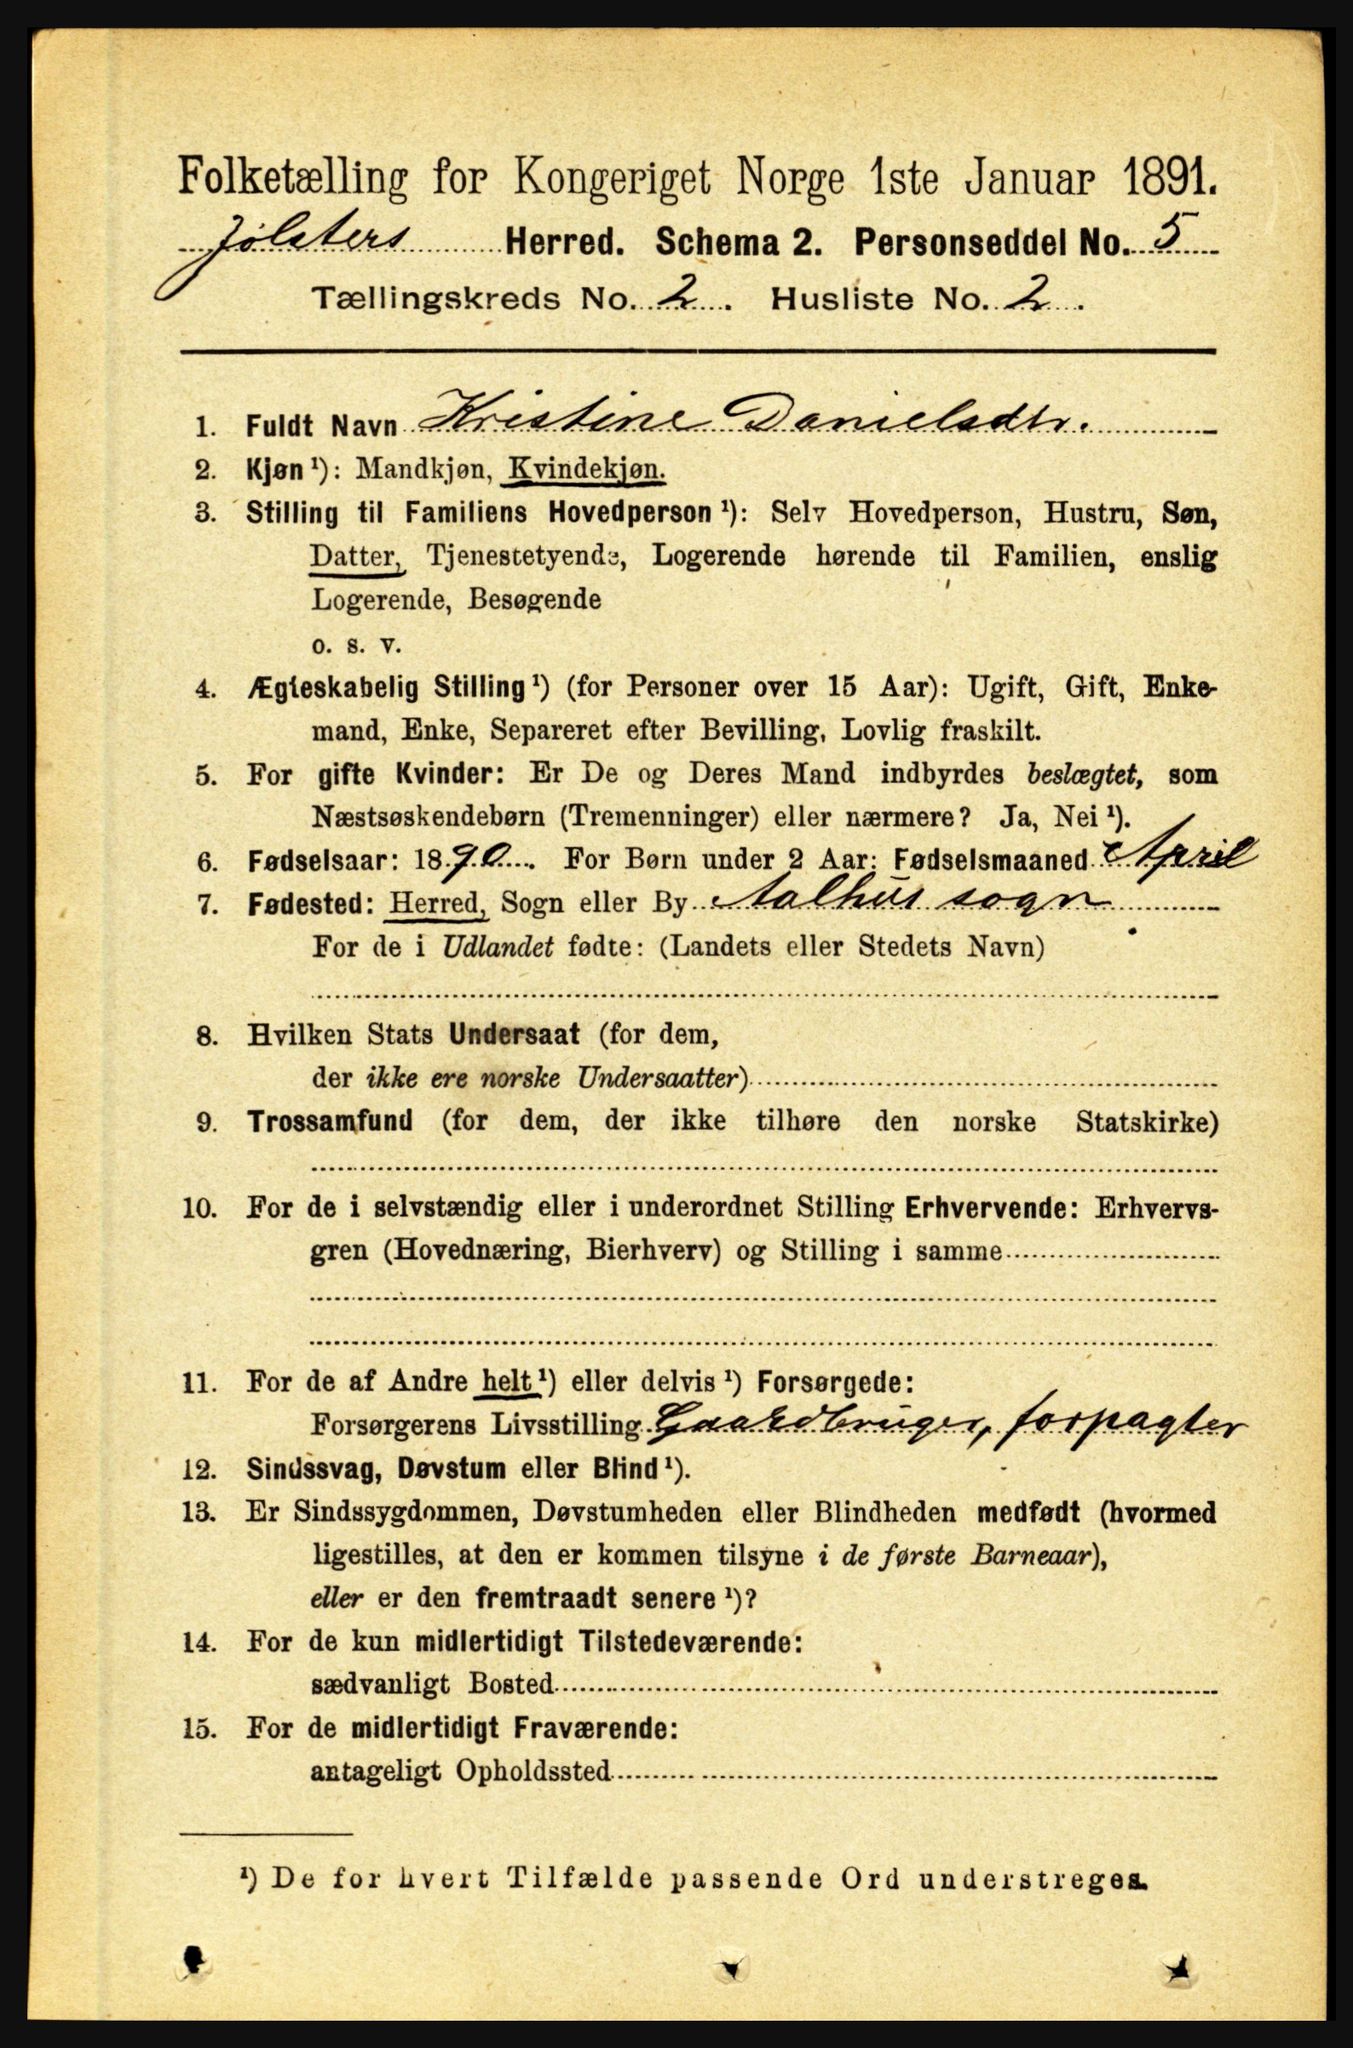 Folketælling for Kongeriget Norge 1ste Januar 1891.
Jølsters Herred. Schema 2. Personseddel No. 5
Tællingskreds No. 2. Husliste No. 2.
1. Fuldt Navn Kristine Danielsdtr.
2. Kjøn ¹): Mandkjøn, Kvindekjøn.
3. Stilling til Familiens Hovedperson ¹): Selv Hovedperson, Hustru, Søn,
Datter, Tjenestetyende, Logerende hørende til Familien, enslig
Logerende, Besøgende
o. s. v.
4. Ægteskabelig Stilling ¹) (for Personer over 15 Aar): Ugift, Gift, Enke-
mand, Enke, Separeret efter Bevilling, Lovlig fraskilt.
5. For gifte Kvinder: Er De og Deres Mand indbyrdes beslægtet, som
Næstsøskendebørn (Tremenninger) eller nærmere? Ja, Nei ¹).
6. Fødselsaar: 1890. For Børn under 2 Aar: Fødselsmaaned April
7. Fødested: Herred, Sogn eller By Aalhus sogn
For de i Udlandet fødte: (Landets eller Stedets Navn)
8. Hvilken Stats Undersaat (for dem,
der ikke ere norske Undersaatter)
9. Trossamfund (for dem, der ikke tilhøre den norske Statskirke)
10. For de i selvstændig eller i underordnet Stilling Erhvervende: Erhvervs-
gren (Hovednæring, Bierhverv) og Stilling i samme
11. For de af Andre helt ¹) eller delvis ¹) Forsørgede:
Forsørgerens Livsstilling Gaardbruger, forpagter
12. Sindssvag, Døvstum eller Blind ¹).
13. Er Sindssygdommen, Døvstumheden eller Blindheden medfødt (hvormed
ligestilles, at den er kommen tilsyne i de første Barneaar),
eller er den fremtraadt senere ¹)?
14. For de kun midlertidigt Tilstedeværende:
sædvanligt Bosted
15. For de midlertidigt Fraværende:
antageligt Opholdssted
¹) De for hvert Tilfælde passende Ord understreges.